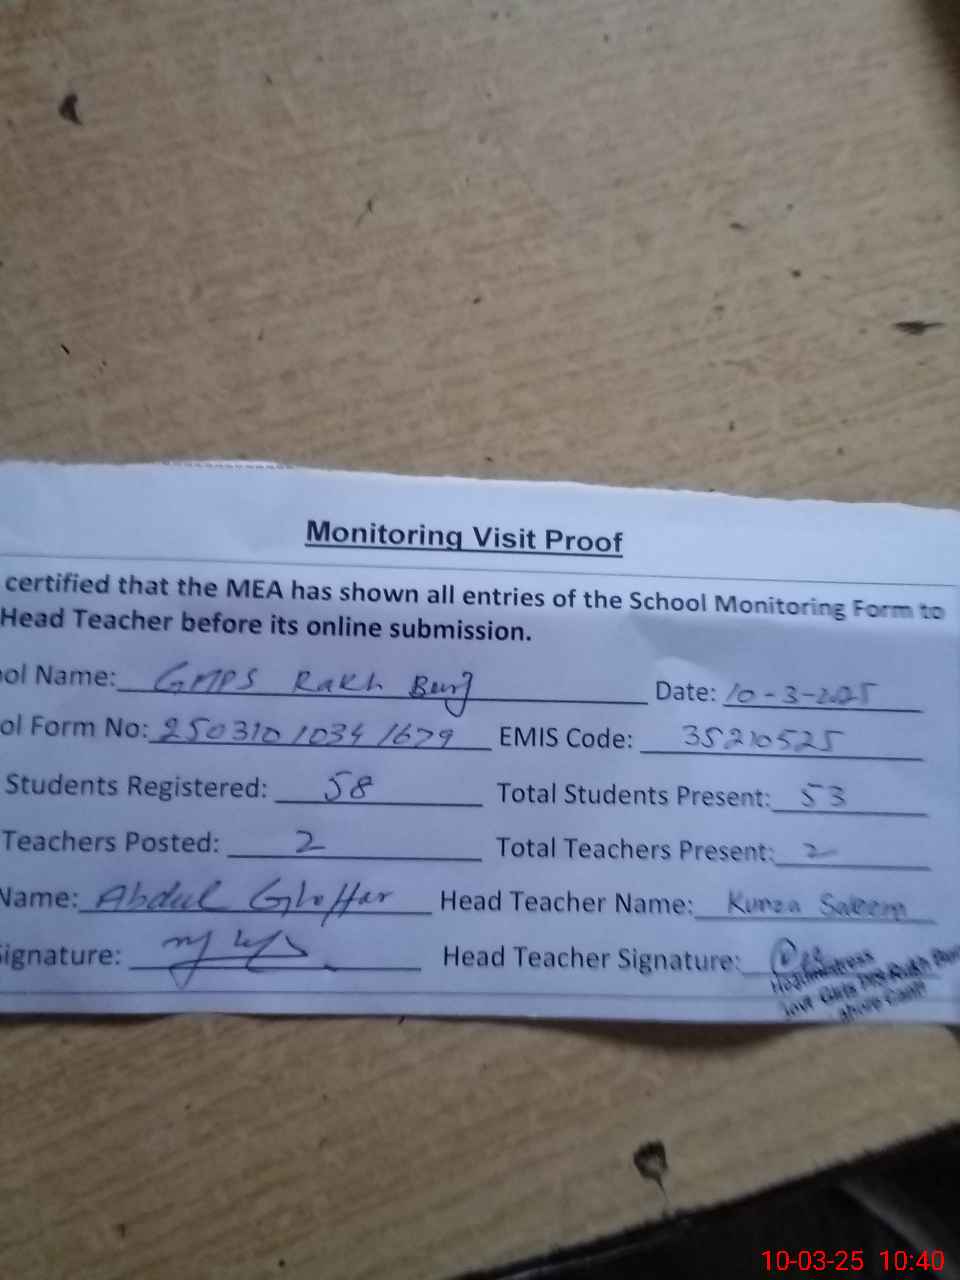 Monitoring Visit Proof
certified that the MEA has shown all entries of the School Monitoring Form to
Head Teacher before its online submission.
ool Name: GMPS Rakh Burj Date: 10-3-2025
ool Form No: 250310 1034 1679 EMIS Code: 35210525
Students Registered: 58 Total Students Present: 53
Teachers Posted: 2 Total Teachers Present: 2
Name: Abdul Ghaffar Head Teacher Name: Kunza Saleem
Signature: Head Teacher Signature:
Headmistress
Govt Girls Rakh
Cantt
10-03-25 10:40